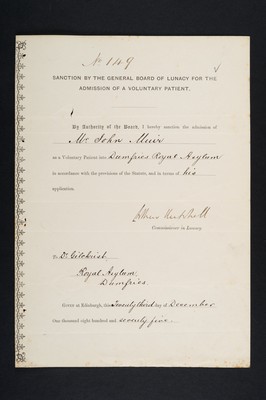 No 149
SANCTION BY THE GENERAL BOARD OF LUNACY FOR THE
ADMISSION OF A VOLUNTARY PATIENT.
By Authority of the Board, I hereby sanction the admission of
Mr John Muir
as a Voluntary Patient into Dumfries Royal Asylum
in accordance with the provisions of the Statute, and in terms of his
application.
Arthur Mitchell
Commissioner in Lunacy.
To Dr Gilchrist,
Royal Asylum,
Dumfries.
Given at Edinburgh, this Twenty third day of December
One thousand eight hundred and seventy five.